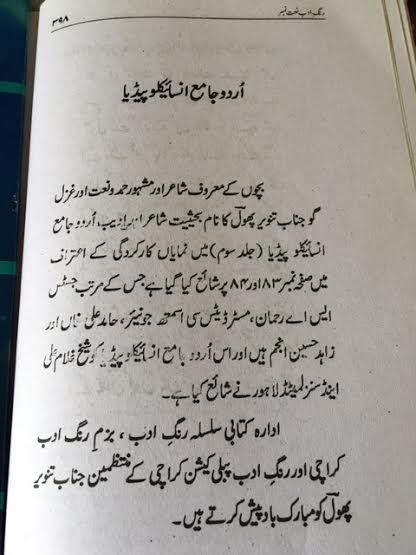 رنگِ ادب نعت نمبر
۳۹۸
اُردو جامع انسائیکلوپیڈیا
بچوں کے معروف شاعر اور مشہور حمد و نعت اور غزل
گو جناب تنویر پھولؔ کا نام بحیثیت شاعر اور ادیب، اُردو جامع
انسائیکلو پیڈیا (جلد سوم) میں نمایاں کارکردگی کے اعتراف
میں صفحہ نمبر ۸۳ اور ۸۴ پر شائع کیا گیا ہے جس کے مرتب جسٹس
ایس اے رحمان، مسٹر ڈیٹس سی اسمتھ جونیئر، حامد علی خاں اور
زاہد حسین انجم ہیں اور اس اُردو جامع انسائیکلو پیڈیا کو شیخ غلام علی
اینڈ سنز لمیٹڈ لاہور نے شائع کیا ہے۔
ادارہ کتابی سلسلہ رنگِ ادب، بزمِ رنگِ ادب
کراچی اور رنگِ ادب پبلی کیشن کراچی کے منتظمین جناب تنویر
پھولؔ کو مبارک باد پیش کرتے ہیں۔